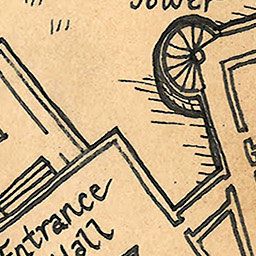 Tower
Entrance
Hall